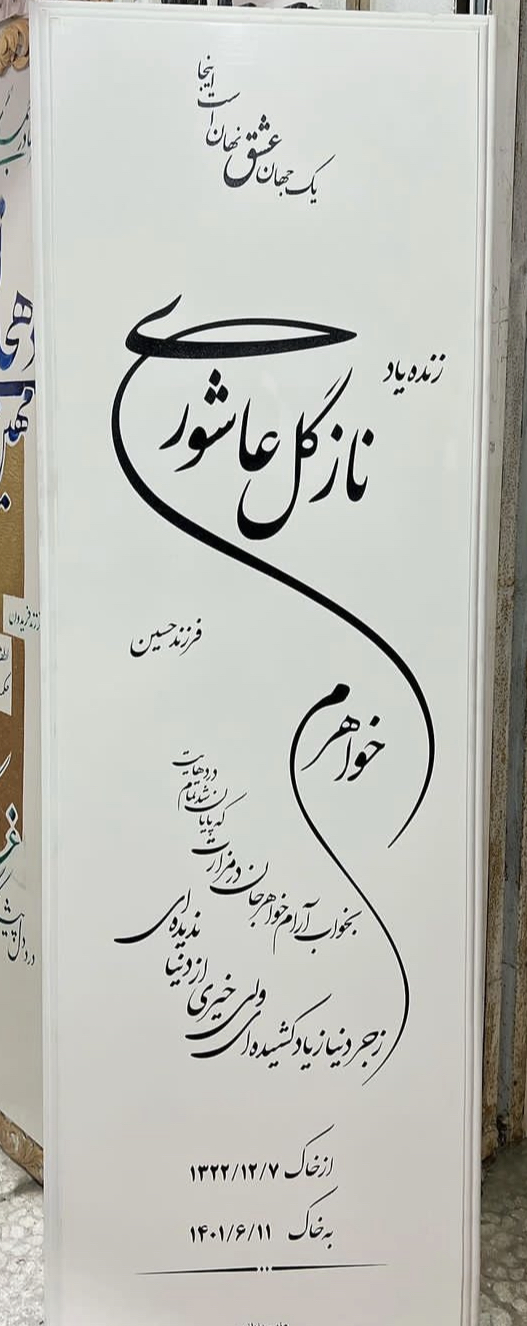 یک جهان عشق نهان است اینجا
زنده یاد
ناز گل عاشوری
فرزند حسین
خواهرم
بخواب آرام خواهر جان در مزارت
که پایان شد تمام دردهایت
زجر دنیا زیاد کشیده ای
ولی خیری از دنیا ندیده ای
از خاک ۱۳۲۲/۱۲/۷
به خاک ۱۴۰۱/۶/۱۱